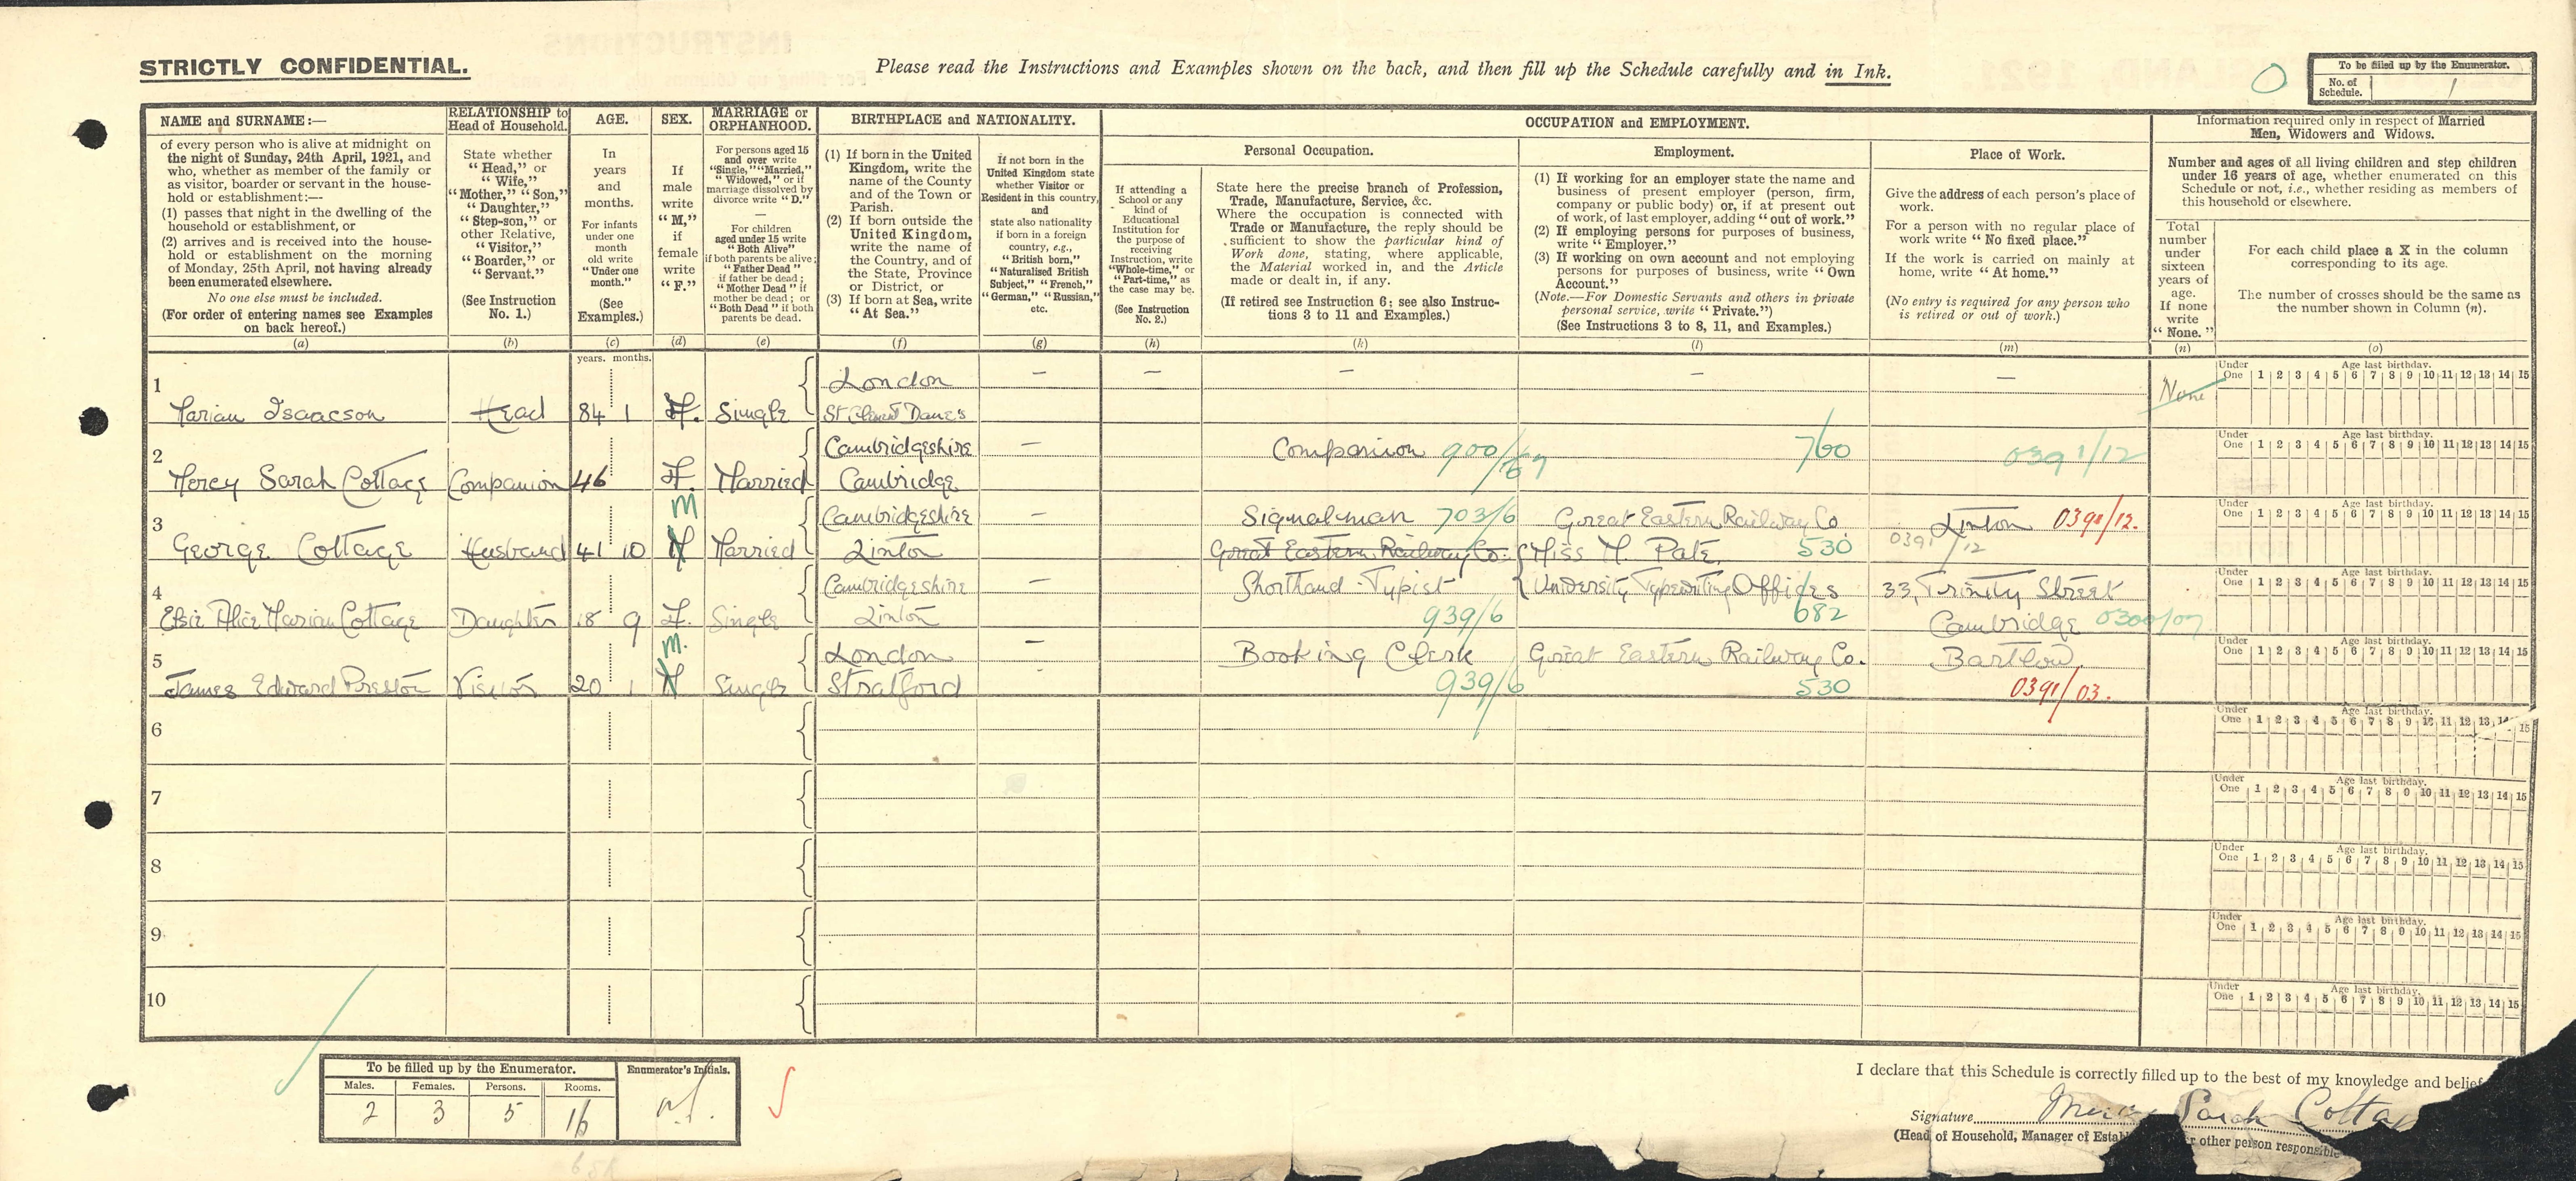 STRICTLY CONFIDENTIAL.
Please read the Instructions and Examples shown on the back, and then fill up the Schedule carefully and in Ink.
O
To be filled up by the Enumerator.
No. of Schedule. 1
NAME and SURNAME:—
of every person who is alive at midnight on
the night of Sunday, 24th April, 1921, and
who, whether as member of the family or
as visitor, boarder or servant in the house-
hold or establishment:—
(1) passes that night in the dwelling of the
household or establishment, or
(2) arrives and is received into the house-
hold or establishment on the morning
of Monday, 25th April, not having already
been enumerated elsewhere.
No one else must be included.
(For order of entering names see Examples
on back hereof.)
(a)
RELATIONSHIP to
Head of Household.
State whether
"Head," or
"Wife,"
"Mother," "Son,"
"Daughter,"
"Step-son," or
other Relative,
"Visitor,"
"Boarder," or
"Servant."
(See Instruction
No. 1.)
(b)
AGE.
In
years
and
months.
For infants
under one
month
old write
"Under one
month."
(See
Examples.)
(c)
SEX.
If
male
write
"M,"
if
female
write
"F."
(d)
MARRIAGE or
ORPHANHOOD.
For persons aged 15
and over write
"Single," "Married,"
"Widowed," or if
marriage dissolved by
divorce write "D."
—
For children
aged under 15 write
"Both Alive"
if both parents be alive;
"Father Dead"
if father be dead;
"Mother Dead" if
mother be dead; or
"Both Dead" if both
parents be dead.
(e)
BIRTHPLACE and NATIONALITY.
(1) If born in the United
Kingdom, write the
name of the County
and of the Town or
Parish.
(2) If born outside the
United Kingdom,
write the name of
the Country, and of
the State, Province
or District, or
(3) If born at Sea, write
"At Sea."
(f)
If not born in the
United Kingdom state
whether Visitor or
Resident in this country,
and
state also nationality
if born in a foreign
country, e.g.,
"British born,"
"Naturalised British
Subject," "French,"
"German," "Russian,"
etc.
(g)
OCCUPATION and EMPLOYMENT.
Personal Occupation.
If attending a
School or any
kind of
Educational
Institution for
the purpose of
receiving
Instruction, write
"Whole-time," or
"Part-time," as
the case may be.
(See Instruction
No. 2.)
(h)
State here the precise branch of Profession,
Trade, Manufacture, Service, &c.
Where the occupation is connected with
Trade or Manufacture, the reply should be
sufficient to show the particular kind of
Work done, stating, where applicable,
the Material worked in, and the Article
made or dealt in, if any.
(If retired see Instruction 6; see also Instruc-
tions 3 to 11 and Examples.)
(k)
Employment.
(1) If working for an employer state the name and
business of present employer (person, firm,
company or public body) or, if at present out
of work, of last employer, adding "out of work."
(2) If employing persons for purposes of business,
write "Employer."
(3) If working on own account and not employing
persons for purposes of business, write "Own
Account."
(Note.—For Domestic Servants and others in private
personal service, write "Private.")
(See Instructions 3 to 8, 11, and Examples.)
(l)
Place of Work.
Give the address of each person's place of
work.
For a person with no regular place of
work write "No fixed place."
If the work is carried on mainly at
home, write "At home."
(No entry is required for any person who
is retired or out of work.)
(m)
Information required only in respect of Married
Men, Widowers and Widows.
Number and ages of all living children and step children
under 16 years of age, whether enumerated on this
Schedule or not, i.e., whether residing as members of
this household or elsewhere.
Total
number
under
sixteen
years of
age.
If none
write
"None."
(n)
For each child place a X in the column
corresponding to its age.
The number of crosses should be the same as
the number shown in Column (n).
(o)
years. months.
1
London — — — — — None
Marian Isaacson Head 84 1 F. Single St Clement Dane's
Under One Age last birthday. 1 2 3 4 5 6 7 8 9 10 11 12 13 14 15
2
Cambridgeshire — Companion 900/ 760 0391/12
Mercy Sarah Cottage Companion 46 F. Married Cambridge
Under One Age last birthday. 1 2 3 4 5 6 7 8 9 10 11 12 13 14 15
3
M Cambridgeshire — Signalman 703/6 Great Eastern Railway Co Linton 0391/12.
George Cottage Husband 41 10 M Married Linton Great Eastern Railway Co. Miss M. Pate, 530 0391/12
Under One Age last birthday. 1 2 3 4 5 6 7 8 9 10 11 12 13 14 15
4
Cambridgeshire — Shorthand-Typist University Typewriting Offices 33, Trinity Street
Elsie Alice Marian Cottage Daughter 18 9 F. Single Linton 939/6 682 Cambridge 0300/07
Under One Age last birthday. 1 2 3 4 5 6 7 8 9 10 11 12 13 14 15
5
M. London — Booking Clerk Great Eastern Railway Co. Bartlow
James Edward Preston Visitor 20 1 M Single Stratford 939/6 530 0391/03.
Under One Age last birthday. 1 2 3 4 5 6 7 8 9 10 11 12 13 14 15
6
Under One Age last birthday. 1 2 3 4 5 6 7 8 9 10 11 12 13 14 15
7
Under One Age last birthday. 1 2 3 4 5 6 7 8 9 10 11 12 13 14 15
8
Under One Age last birthday. 1 2 3 4 5 6 7 8 9 10 11 12 13 14 15
9
Under One Age last birthday. 1 2 3 4 5 6 7 8 9 10 11 12 13 14 15
10
Under One Age last birthday. 1 2 3 4 5 6 7 8 9 10 11 12 13 14 15
To be filled up by the Enumerator. Enumerator's Initials.
Males. Females. Persons. Rooms.
2 3 5 16
I declare that this Schedule is correctly filled up to the best of my knowledge and belief
Signature Sarah Cotta
(Head of Household, Manager of Estab r other person responsible